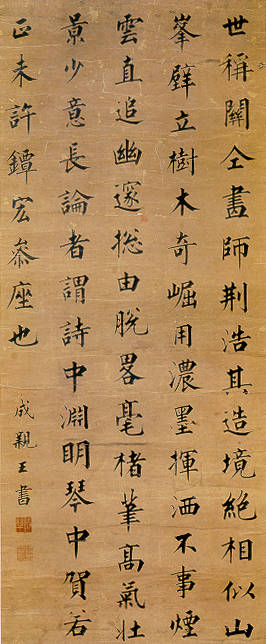 世稱關仝畵師荆浩其造境絶相似山
峯壁立樹木奇崛用濃墨揮洒不事煙
雲直追幽邃揔由脫畧毫楮筆髙氣壯
景少意長論者謂詩中淵明琴中賀若
正未許鐔宏叅座也
成親王書